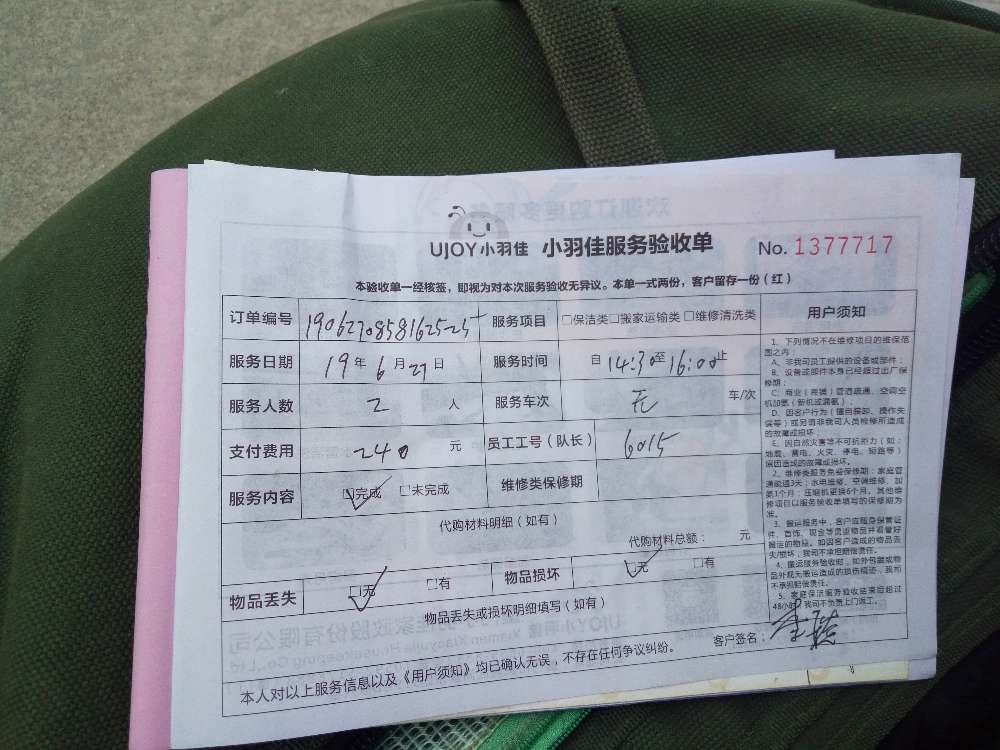 UJOY小羽佳 小羽佳服务验收单 No. 1377717
本验收单一经核签，即视为对本次服务验收无异议。本单一式两份，客户留存一份（红）
订单编号 19062708581625254 服务项目 □保洁类□搬家运输类□维修清洗类
服务日期 19年6月27日 服务时间 自14:30至16:00止
服务人数 2人 服务车次 无 车/次
支付费用 240 元 员工工号（队长） 6015
服务内容 ☑完成 □未完成 维修类保修期
代购材料明细（如有）
代购材料总额： 元
物品丢失 ☑无 □有 物品损坏 ☑无 □有
物品丢失或损坏明细填写（如有）
客户签名：
本人对以上服务信息以及《用户须知》均已确认无误，不存在任何争议纠纷。
用户须知
1、下列情况不在维修项目的维保范
围之内：
A、非我司员工提供的设备或部件；
B、设备或部件本身已经超过出厂保
修期；
C、商业（商铺）管道疏通、空调空
机加氨（新机或漏氨）；
D、因客户行为（擅自装卸、操作失
误等）或另请非我司人员检修所造成
的故障或损坏；
E、因自然灾害等不可抗拒力（如：
地震、雷电、火灾、停电、短路等）
原因造成的故障或损坏。
2、维修类服务免费保修期：家庭管
道疏通3天；水电维修、空调维修、加
氨1个月；压缩机更换6个月。其他维
修项目以服务验收单填写的保修期为
准。
3、搬运服务中，客户应随身保管证
件、首饰、现金等贵重物品并看管好
搬运的物品。如因客户造成的物品丢
失/损坏，我司不承担赔偿责任。
4、搬运服务验收时，如外包装或物
品外观无搬运造成的损伤痕迹，我司
不承担赔偿责任。
5、家庭保洁服务验收结束后超过
48小时，我司不负责上门返工。